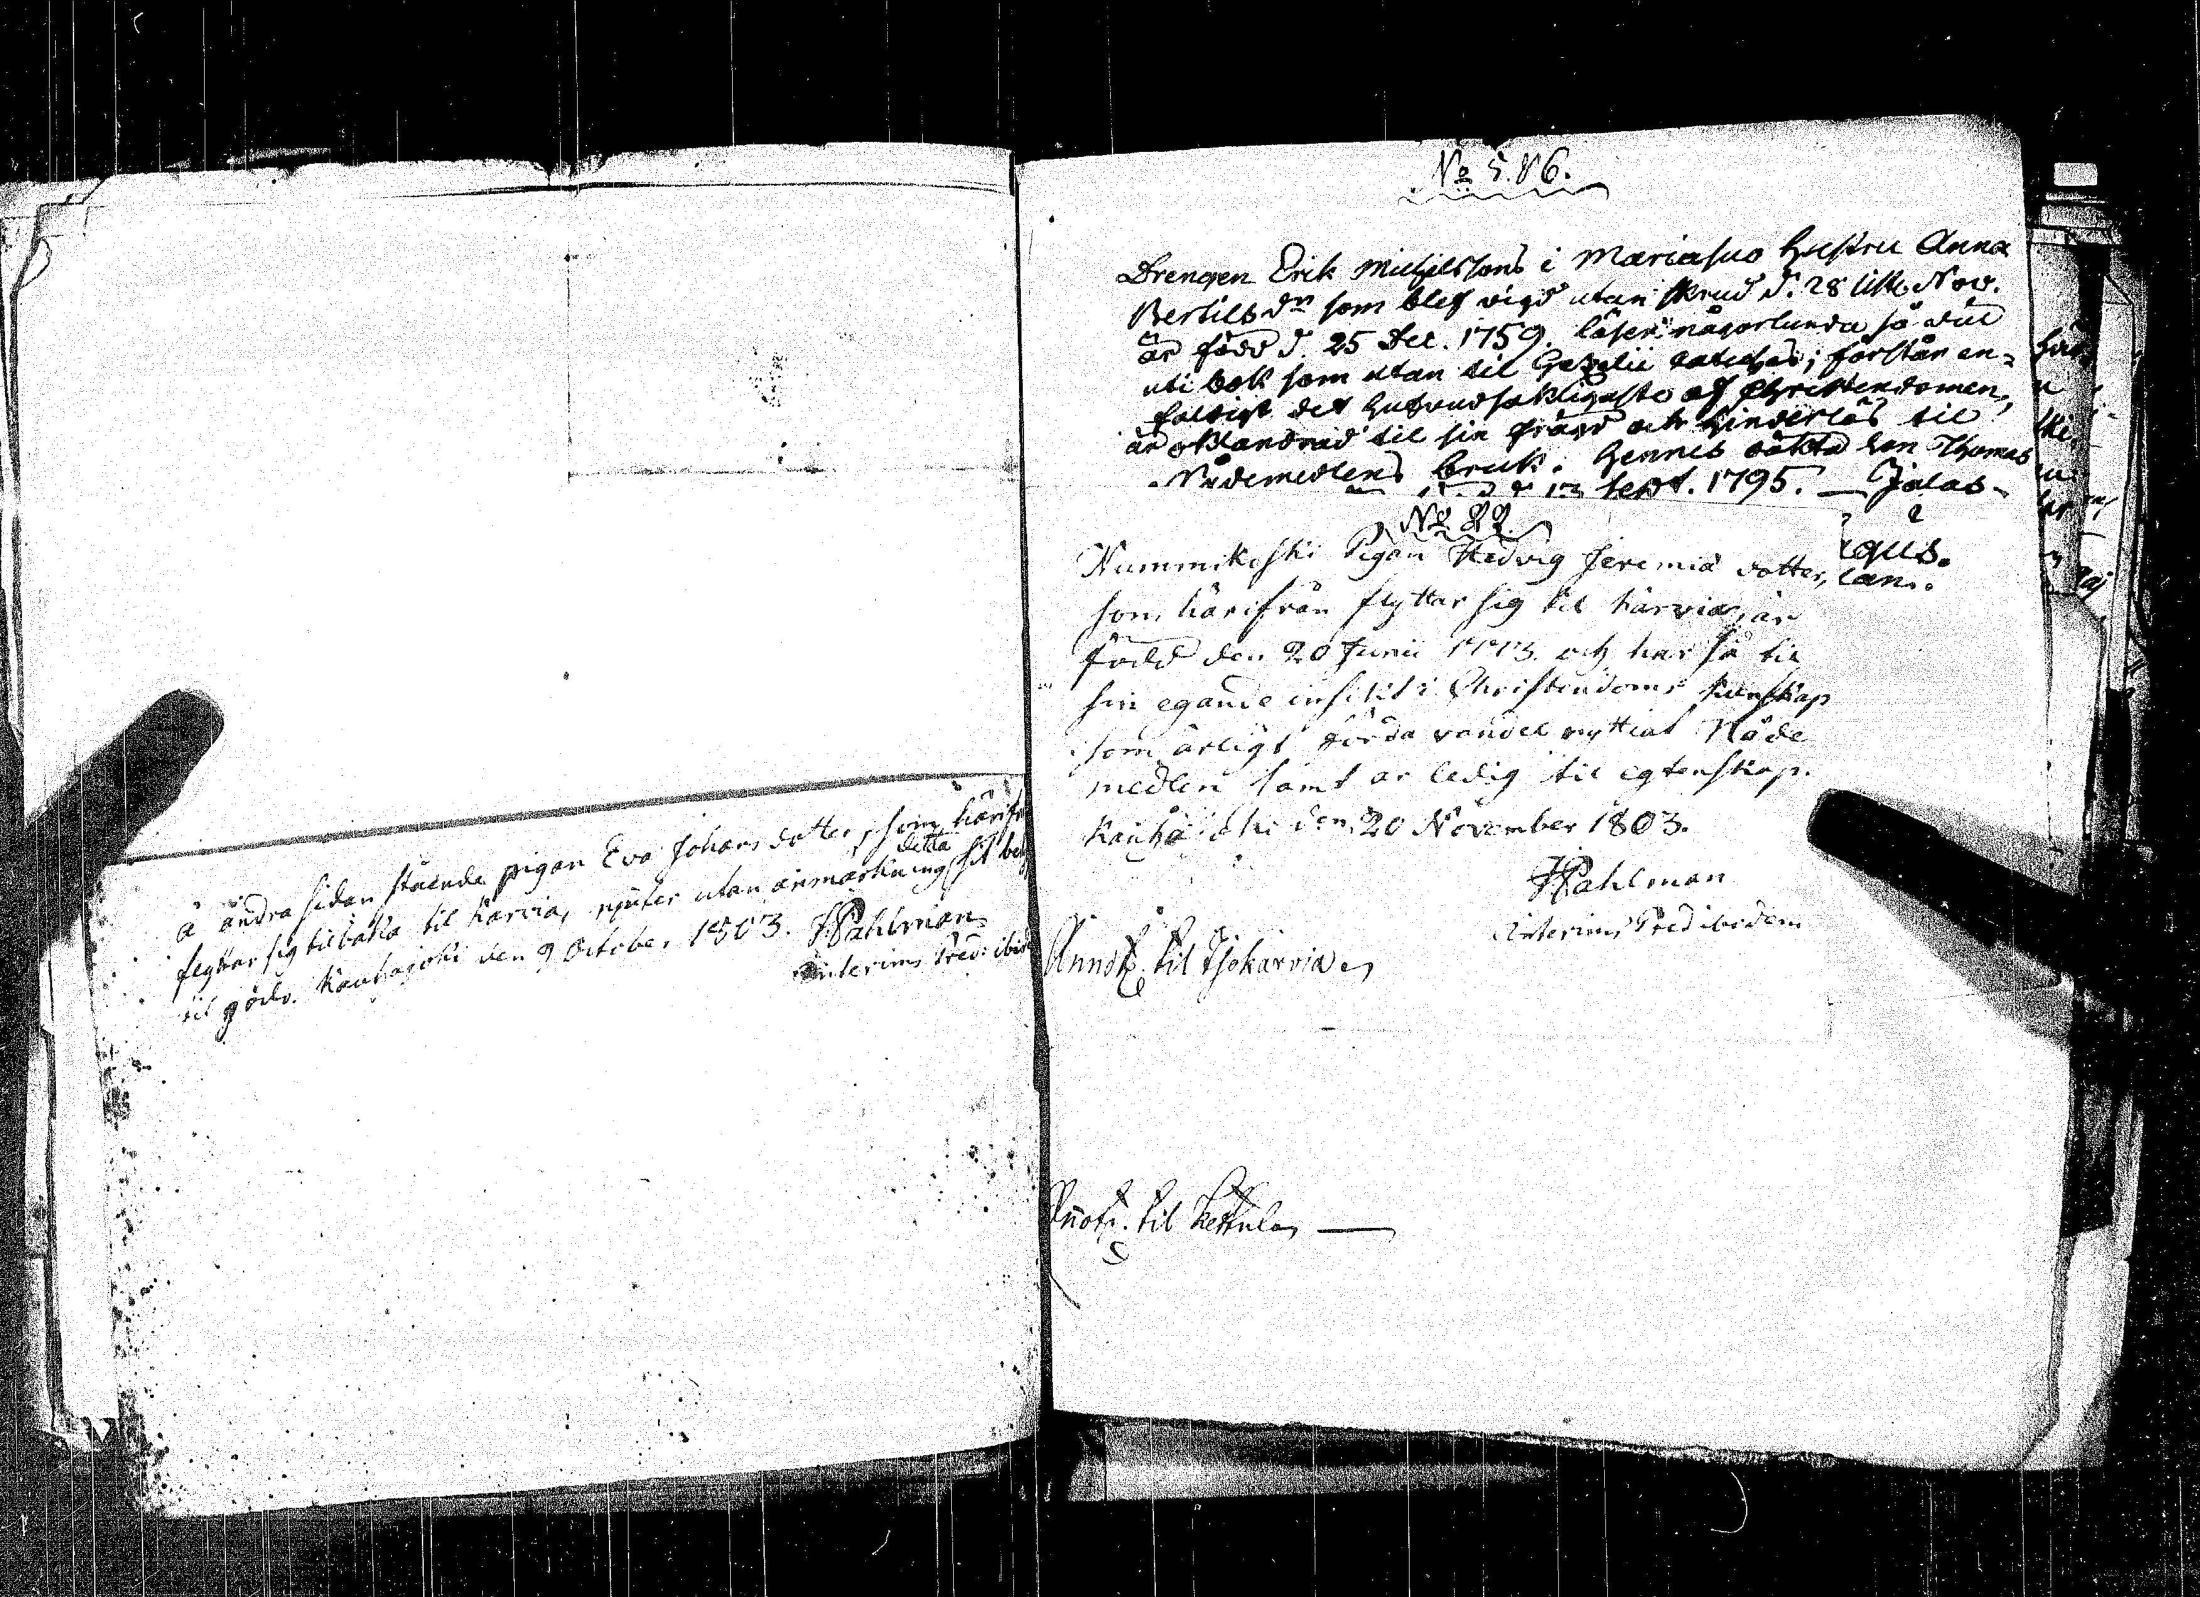 å andra sidan stående pigan Eva Johans dotter, som härifr
flyttar sig tilbaka til Karvia, njuter utan anmärkning detta sit bet
til godo. Kauhajoki den 9 October 1803. JPahlman
interims Pred: ibid
No 5.86.
Drengen Erik Michelssons i Mariasuo hustru Anna
Bertils dr som blef vigd utan skrud d. 28 Nov.
är född d. 25 Dec. 1759. läser någorlunda så väl
uti bok som utan til Gezelii cateches; förstår en-
faldigt det hufvudsakligaste af Christendomen,
är oklandrad til sin frägd och hinderlös til
Nådemedlens bruk. Hennes oäkta son Thomas
Sept. 1795. — Jalas-
No 22.
Nummikoski Pigan Hedvig Jeremiæ dotter,
som härifrån flyttar sig til Karvia, är
född den 20 Junii 1773. och har på
sin egande insikt i Christendoms kunskap
som ärligt förda vandel nyttiat Nåde
medlen samt är ledig til egtenskap.
Kauhajoki den 20 November 1803.
JPahlman
interims Pred ibidem
Annot. til Kettula —